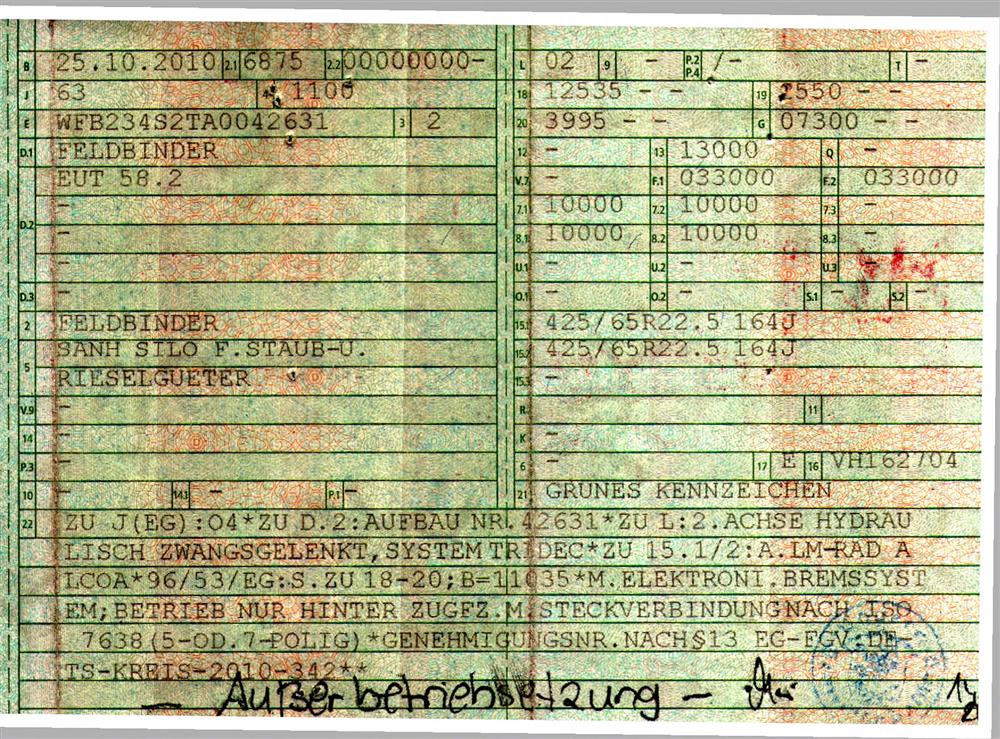 B 25.10.2010 2.1 6875 2.2 00000000- L 02 9 - P.2 P.4 /- T -
J 63 4 1100 18 12535 - - 19 2550 - -
E WFB234S2TA0042631 3 2 20 3995 - - G 07300 - -
D.1 FELDBINDER 12 - 13 13000 Q -
EUT 58.2 V.7 - F.1 033000 F.2 033000
D.2 - 7.1 10000 7.2 10000 7.3 -
- 8.1 10000 8.2 10000 8.3 -
- U.1 - U.2 - U.3 -
D.3 - O.1 - O.2 - S.1 - S.2 -
2 FELDBINDER 15.1 425/65R22.5 164J
5 SANH SILO F.STAUB-U. 15.2 425/65R22.5 164J
RIESELGUETER 15.3 -
V.9 - R - 11
14 - K -
P.3 - 6 - 17 E 16 VH162704
10 - 14.1 - P.1 - 21 GRÜNES KENNZEICHEN
22 ZU J(EG):04*ZU D.2:AUFBAU NR.42631*ZU L:2.ACHSE HYDRAU
LISCH ZWANGSGELENKT,SYSTEM TRIDEC*ZU 15.1/2:A.LM-RAD A
LCOA*96/53/EG:S.ZU 18-20;B=11035*M.ELEKTRONI.BREMSSYST
EM;BETRIEB NUR HINTER ZUGFZ.M.STECKVERBINDUNG NACH ISO
7638(5-OD.7-POLIG)*GENEHMIGUNGSNR.NACH§13 EG-FGV:DE-
TS-KREIS-2010-342**
— Außerbetriebsetzung —